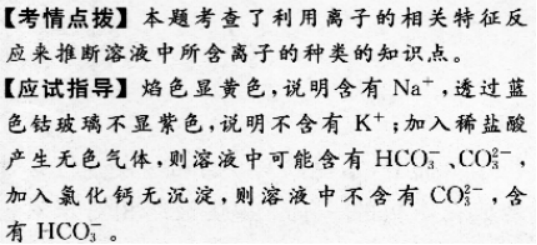 【考情点拨】本题考查了利用离子的相关特征反
应来推断溶液中所含离子的种类的知识点。
【应试指导】焰色显黄色,说明含有 Na⁺,透过蓝
色钴玻璃不显紫色,说明不含有 K⁺;加入稀盐酸
产生无色气体,则溶液中可能含有 HCO₃⁻、CO₃²⁻,
加入氯化钙无沉淀,则溶液中不含有 CO₃²⁻,含
有 HCO₃⁻。